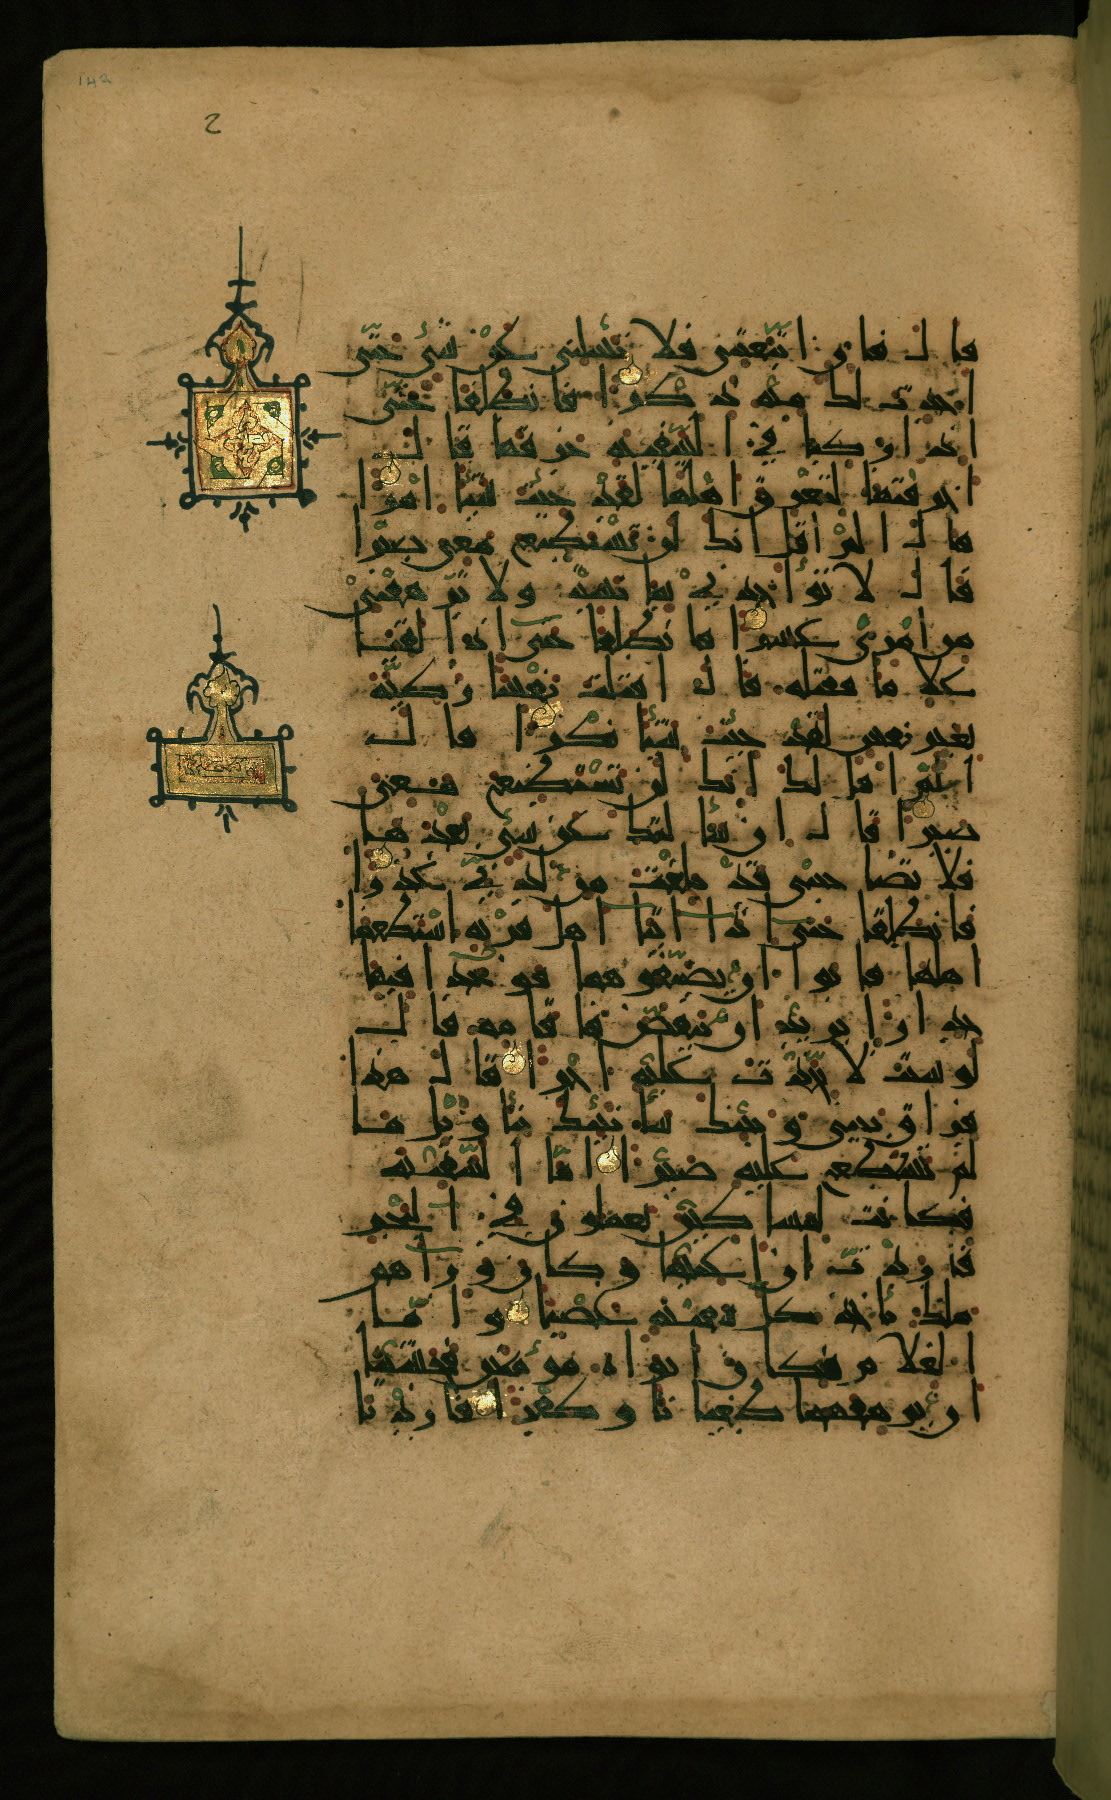 142
2
قال فان اتبعتني فلا تسلني عن شيء حتى
احدث لك منه ذكرا فانطلقا حتى
اذا ركبا في السفينة خرقها قال
اخرقتها لتغرق اهلها لقد جئت شيئا امرا
قال الم اقل انك لن تستطيع معي صبرا
قال لا تؤاخذني بما نسيت ولا ترهقني
من امري عسرا فانطلقا حتى اذا لقيا
غلاما فقتله قال اقتلت نفسا زكية
بغير نفس لقد جئت شيئا نكرا قال
الم اقل لك انك لن تستطيع معي
صبرا قال ان سألتك عن شيء بعدها
فلا تصاحبني قد بلغت من لدني عذرا
فانطلقا حتى اذا اتيا اهل قرية استطعما
اهلها فابوا ان يضيفوهما فوجدا فيها
جدارا يريد ان ينقض فاقامه قال
لو شئت لاتخذت عليه اجرا قال هذا
فراق بيني وبينك سانبئك بتأويل ما
لم تستطع عليه صبرا اما السفينة
فكانت لمساكين يعملون في البحر
فاردت ان اعيبها وكان وراهم
ملك يأخذ كل سفينة غصبا واما
الغلام فكان ابواه مؤمنين فخشينا
ان يرهقهما طغيانا وكفرا فاردنا